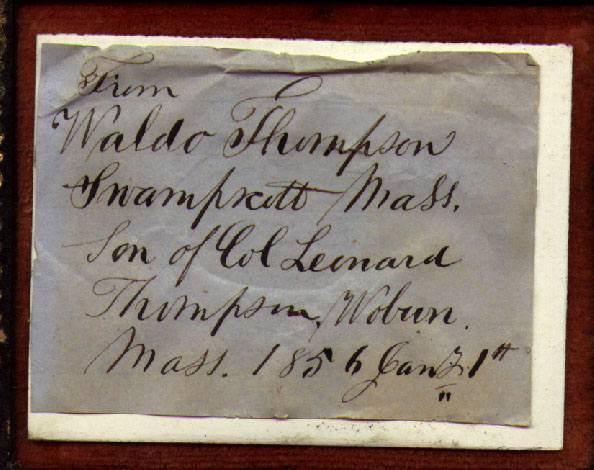 From
Waldo Thompson
Swampscott Mass.
Son of Col Leonard
Thompson, Woburn.
Mass. 1856 Jany. 1st